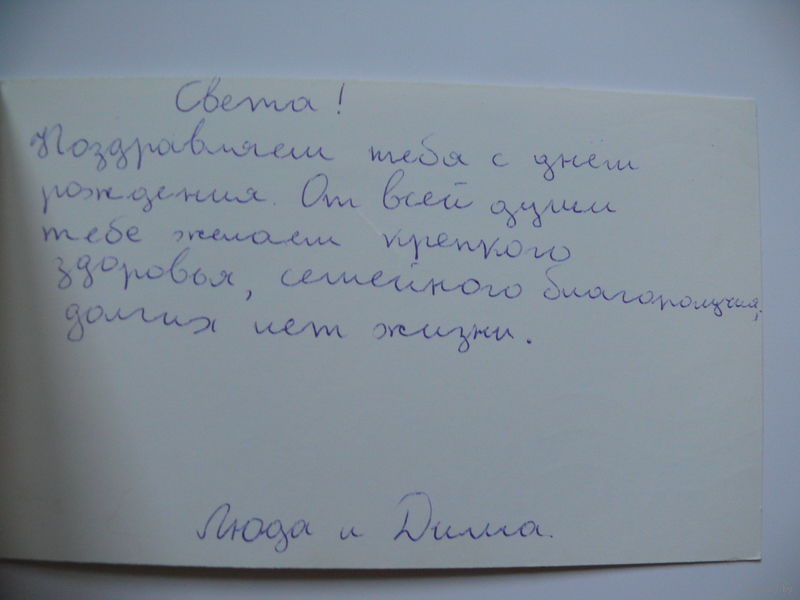 Света!
Поздравляем тебя с днём
рождения. От всей души
тебе желаем крепкого
здоровья, семейного благополучия,
долгих лет жизни.
Люда и Дима.